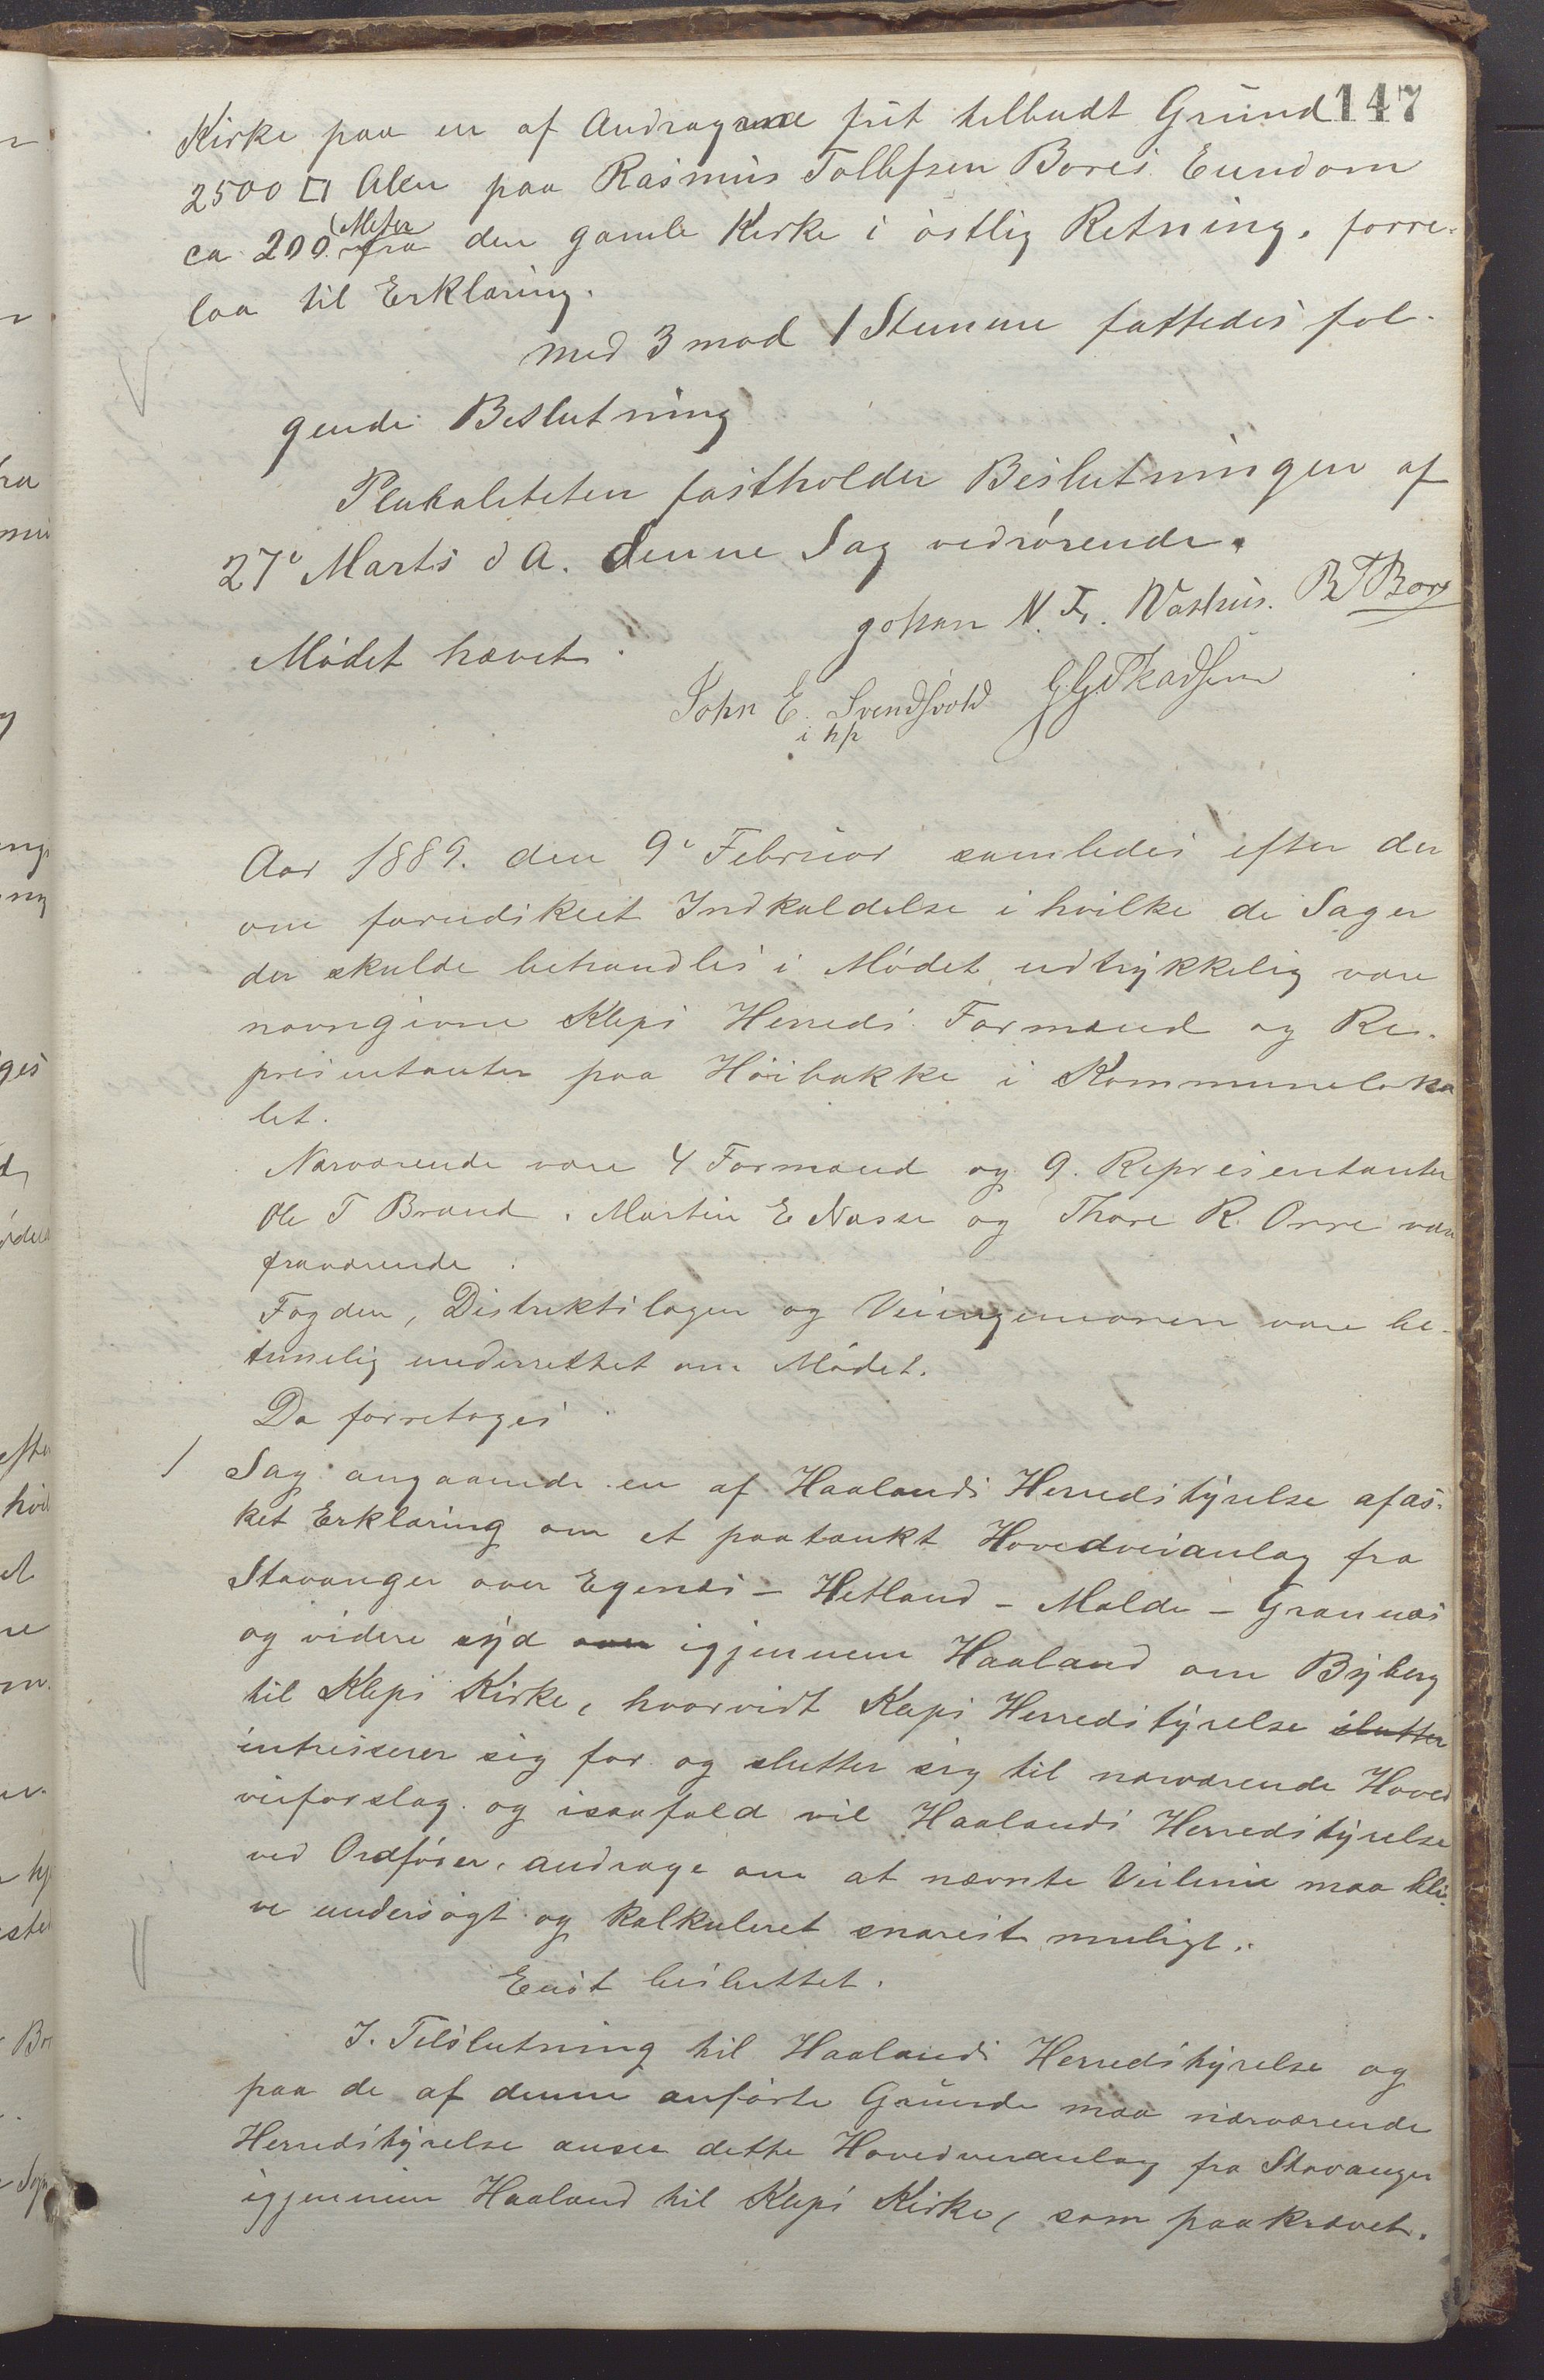 147
Kirke paa en af Andragerne frit tilbudt Grund
2500 □ Alen paa Rasmus Tollefsen Bores Eiendom
ca 200 Meter fra den gamle Kirke i østlig Retning, forre-
laa til Erklæring.
Med 3 mod 1 Stemme fattedes føl-
gende Beslutning
Pluraliteten fastholder Beslutningen af
27de Marts d A. denne Sag vedrørende.
Mødet hævet.
Johan N. Fr. Wasthus. B T Bore
John E. Svendsvold G. G. Skadsem
i hp
Aar 1889. den 9de Februar samledes efter der
om forudskeet Indkaldelse i hvilke de Sager
der skulde behandles i Mødet udtrykkelig vare
navngivne Kleps Herreds Formænd og Re-
presentanter paa Høibakke i Kommuneloka
let.
Nærværende vare 4 Formænd og 9. Representanter
Ole T Braud. Martin E Næsse og Thore R. Orre var
fraværende.
Fogden, Distriktslægen og Veiingeniøren vare be-
timelig underrettet om Mødet.
Da foretoges
1 Sag angaaende en af Haalands Herredstyrelse afæs-
ket Erklæring om et paatænkt Hovedveianlæg fra
Stavanger over Egenes - Hetland - Malde - Grannes
og videre syd over igjennem Haaland om Byberg
til Kleps Kirke, hvorvidt Kleps Herredstyrelse slutter
intresserer sig for og slutter sig til nærværende Hoved
veiforslag og isaafald vil Haalands Herredstyrelse
ved Ordfører, andrage om at nævnte Veilinie maa bli-
ve undersøgt og kalkuleret snarest muligt.
Enst besluttet.
I. Tilslutning til Haalands Herredstyrelse og
paa de af denne anførte Grunde maa nærværende
Herredstyrelse anser dette Hovedveianlæg fra Stavanger
igjennem Haaland til Kleps Kirke, som paakrævet.